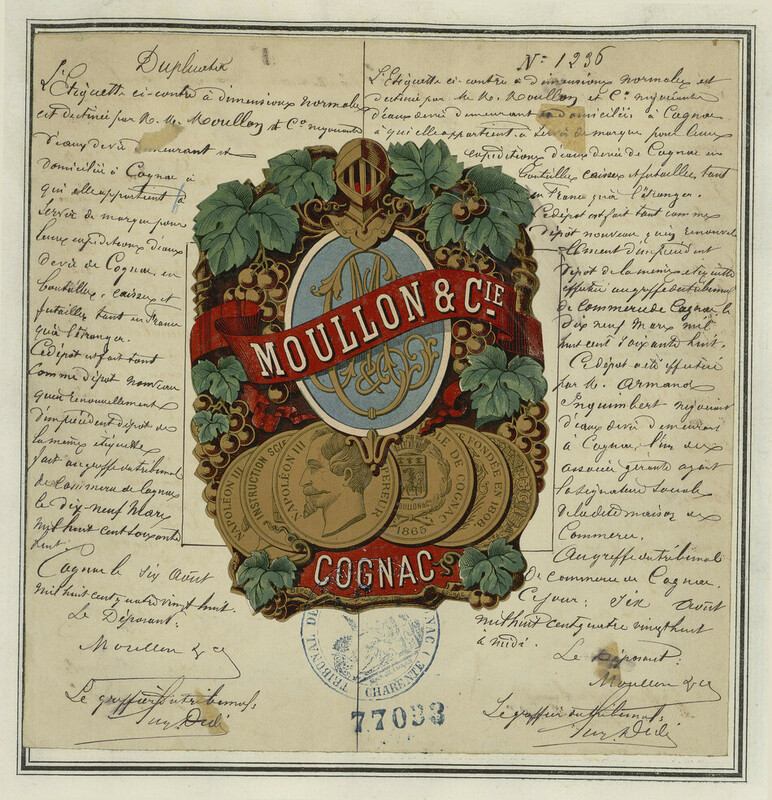 Duplicata
L'Etiquette ci-contre à dimensions normales
est destinée par M. M. Moullon et Co négociants
d'eaux de vie demeurant et
domiciliés à Cognac à
qui elle appartient à
servir de marque pour
leurs expéditions d'eaux
de vie de Cognac en
bouteilles, caisses et
futailles tant en France
qu'à l'étranger.
Ce dépôt est fait tant
comme dépôt nouveau
qu'en renouvellement
d'un précédent dépôt de
la même étiquette
fait au greffe du tribunal
de commerce de Cognac
le dix-neuf Mars
mil huit cent soixante
huit.
Cognac le six Août
mil huit cent quatre vingt huit.
Le Déposant:
Moullon & Co
Le greffier du tribunal:
No 1236
L'Etiquette ci-contre à dimensions normales est
destinée par M. M. Moullon et Co négociants
d'eaux de vie demeurant et domiciliés à Cognac
à qui elle appartient à servir de marque pour leurs
expéditions d'eaux de vie de Cognac en
bouteilles caisses et futailles tant
en France qu'à l'étranger.
Ce dépôt est fait tant comme
dépôt nouveau qu'en renouvel-
lement d'un précédent
dépôt de la même étiquette
effectué au greffe du tribunal
de commerce de Cognac le
dix neuf Mars mil
huit cent soixante huit.
Ce dépôt a été effectué
par M. Armand
Inquimbert négociant
d'eaux de vie demeurant
à Cognac, l'un des
associés gérants ayant
la signature sociale
de la dite maison de
Commerce.
Au greffe du tribunal
de commerce de Cognac.
Ce jour: six Août
mil huit cent quatre vingt huit
à midi.
Le Déposant:
Moullon & Co
Le greffier du tribunal:
MOULLON & CIE
NAPOLÉON III
INSTRUCTION
NAPOLÉON III
EMPEREUR
VILLE DE COGNAC
1865
FONDÉE EN 1808
COGNAC
TRIBUNAL DE
COGNAC
CHARENTE
77033